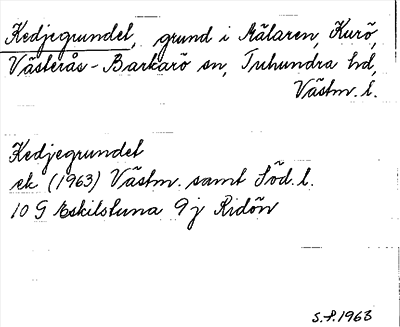 Kedjegrundet, grund i Mälaren, Kurö,
Västerås-Barkarö sn, Tuhundra hd,
Västm. l.
Kedjegrundet
ek (1963) Västm. samt Söd. l.
10 G Eskilstuna 9 j Ridön
S.P. 1963